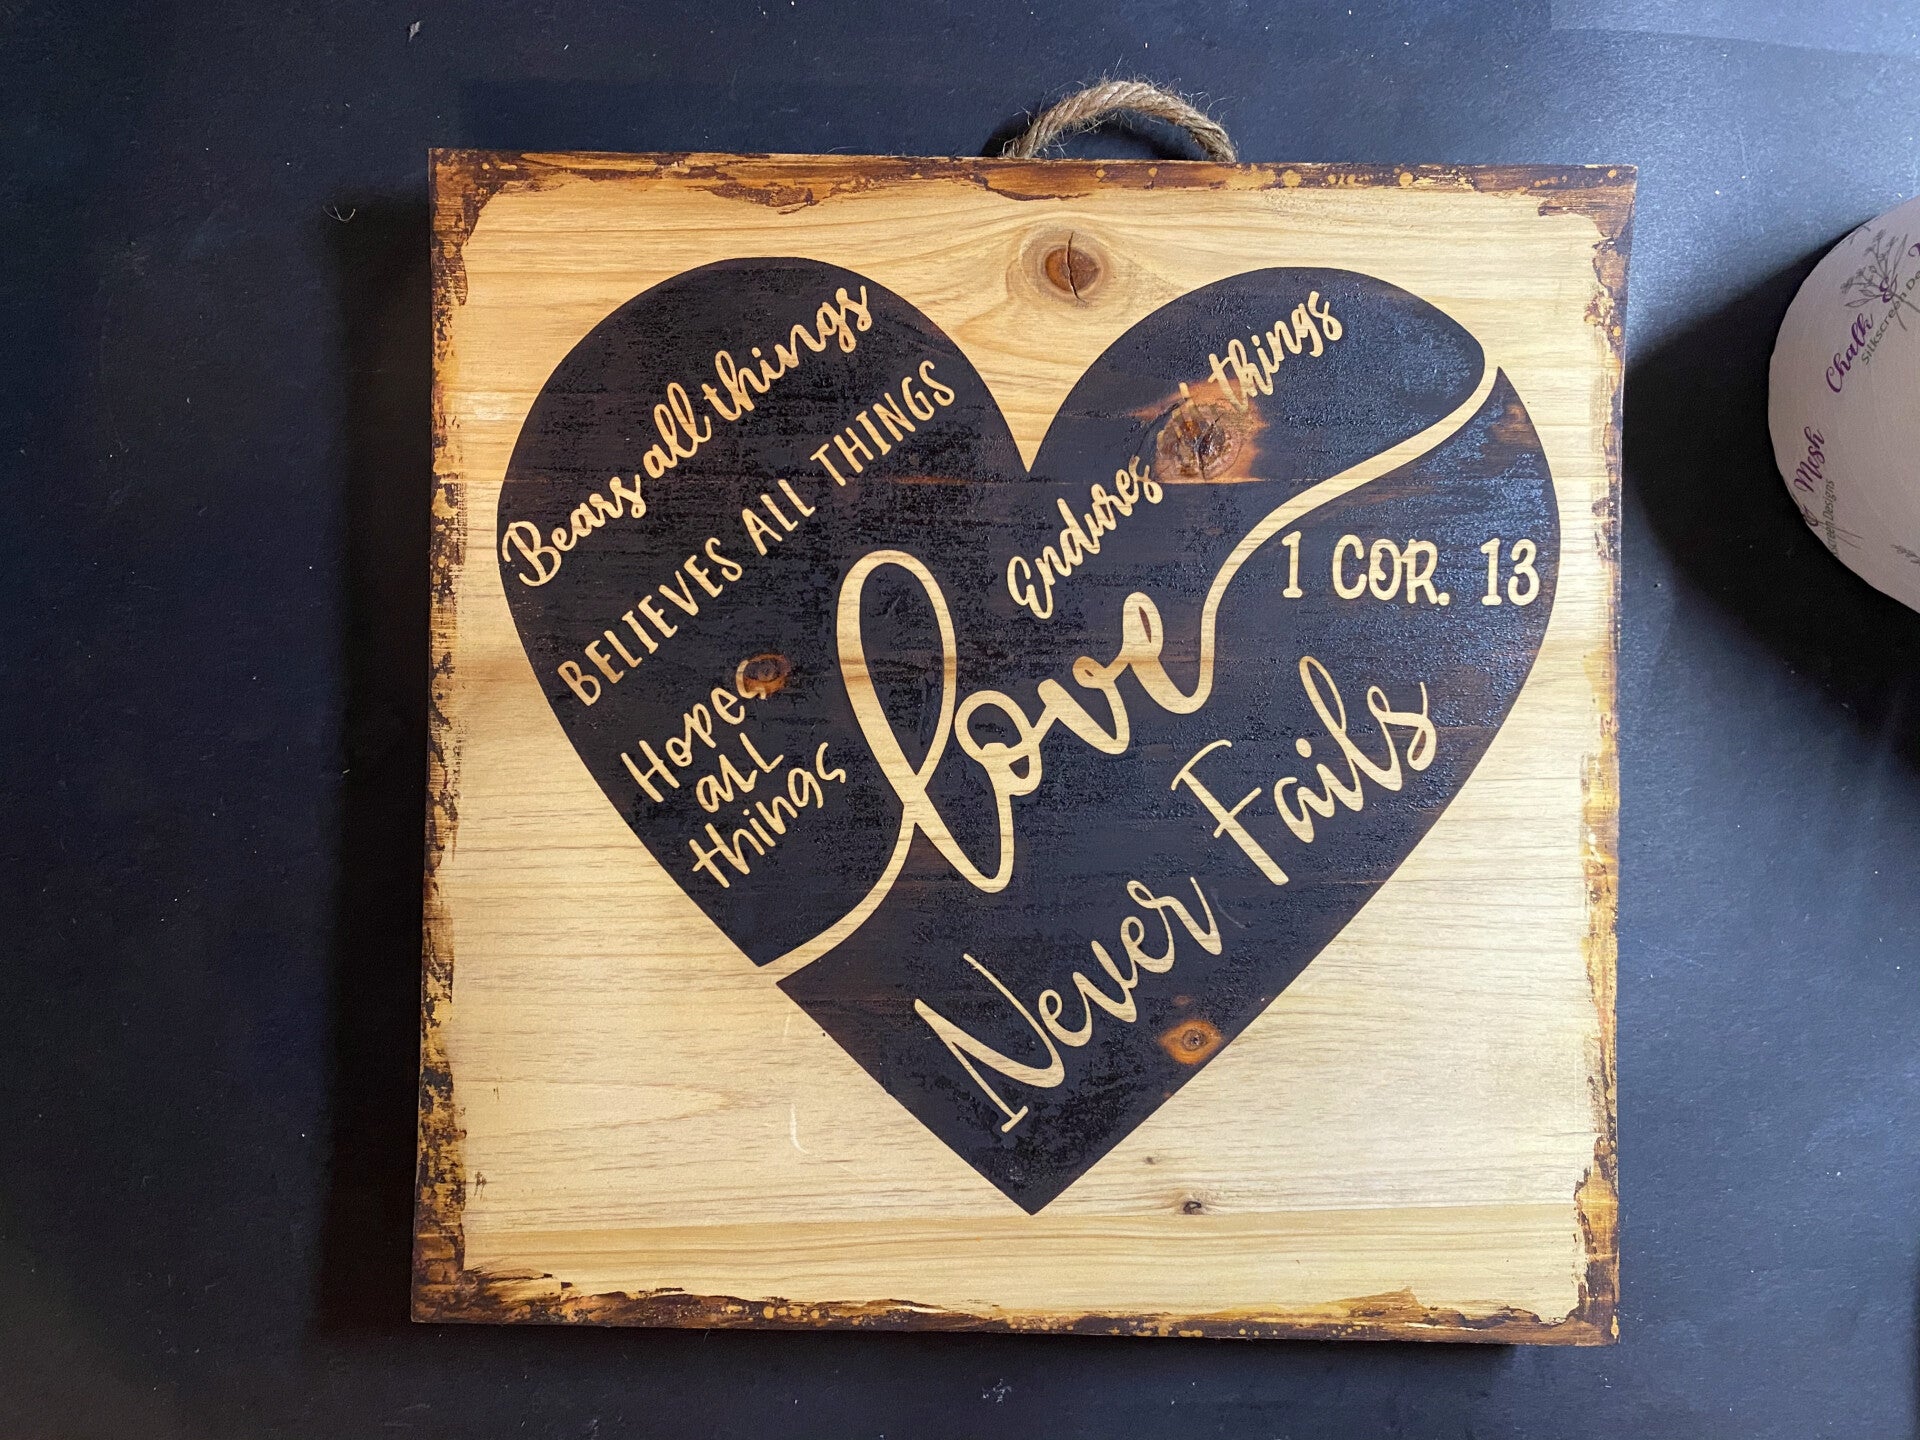 Bears all things
BELIEVES ALL THINGS
Hopes
all
things
Endures all things
love
1 COR. 13
Never Fails
Chalk
Silkscreen De
& Mesh
screen Designs